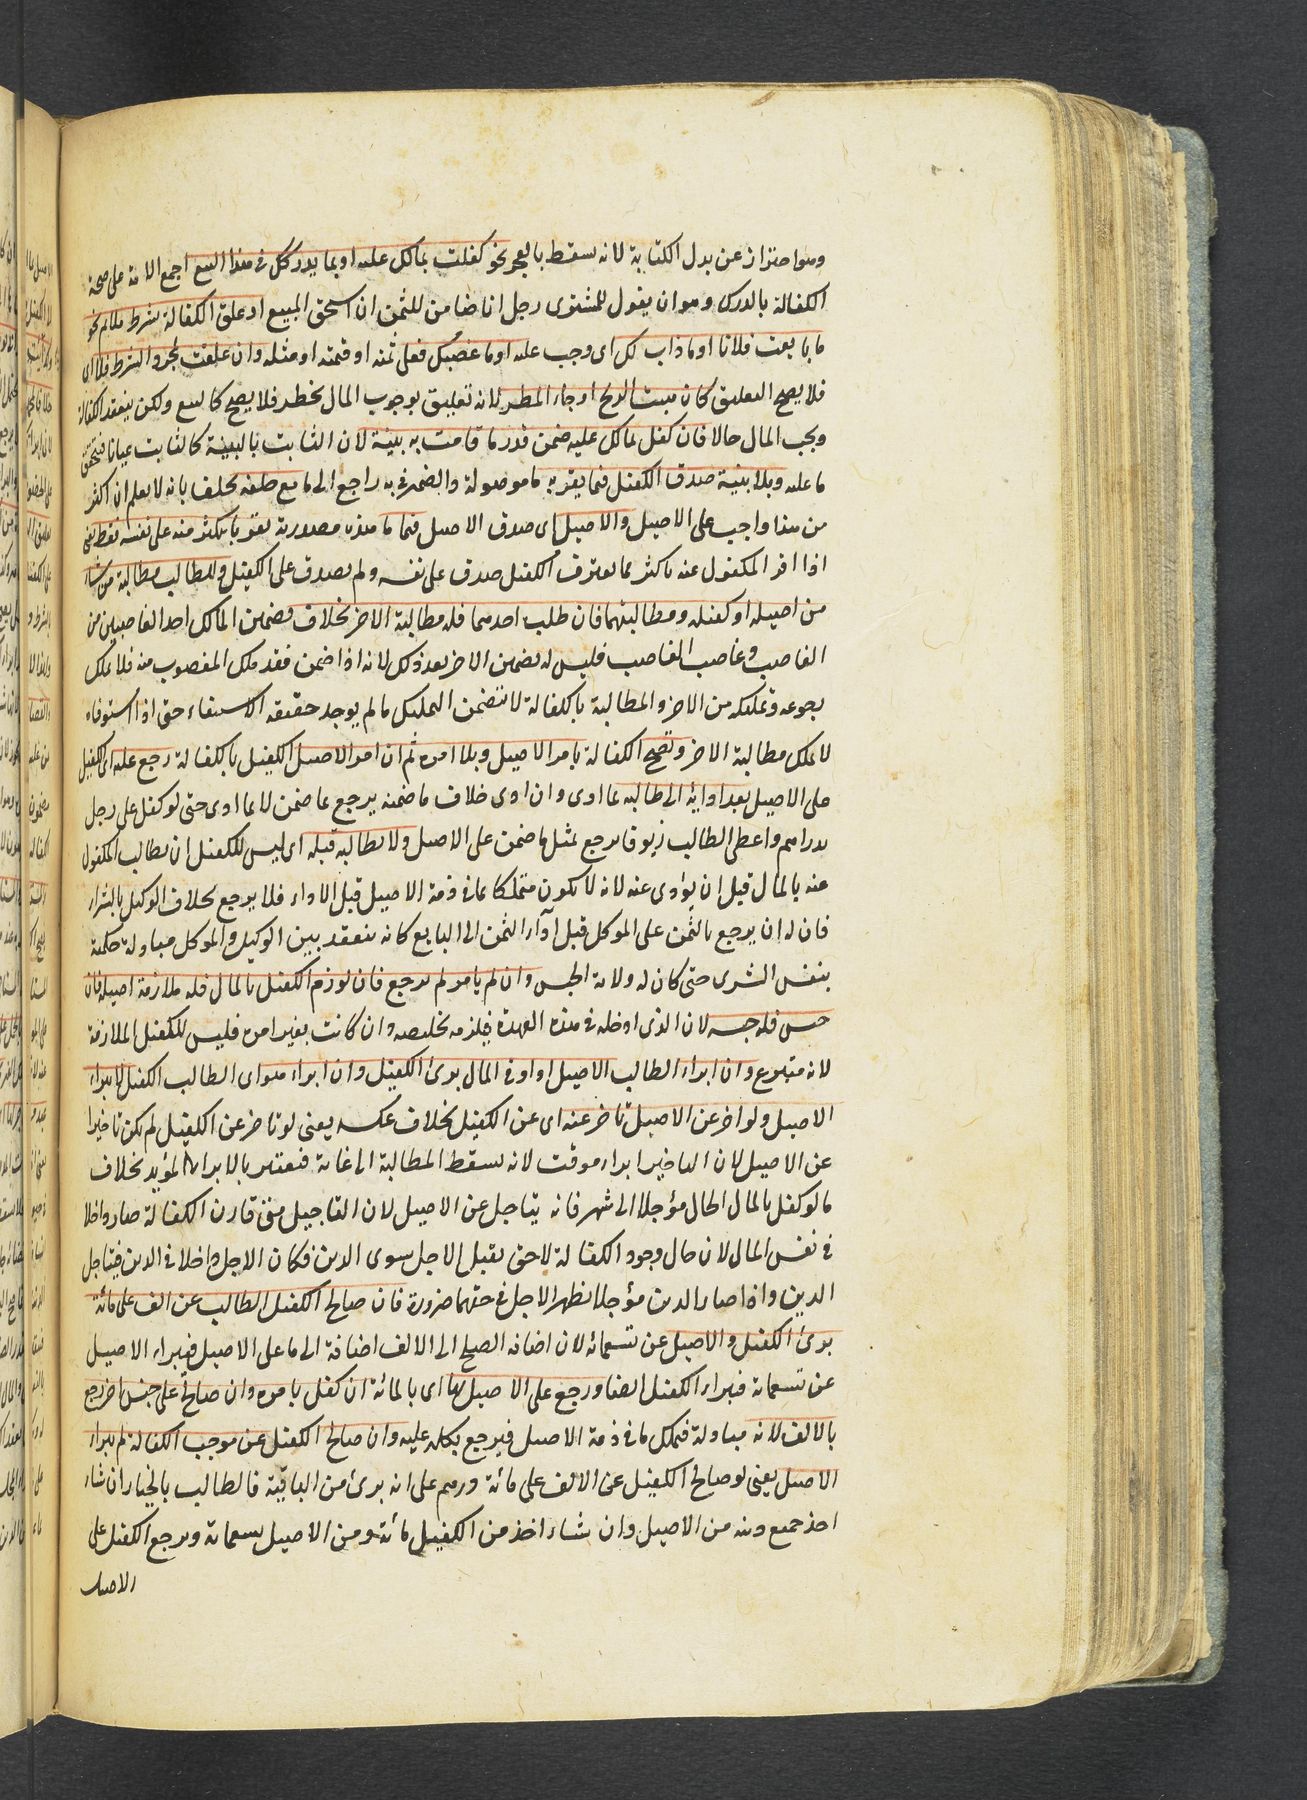 وهو احتراز عن بدل الكتابة لانه يسقط بالعجز نحو كفلت بمالك عليه او بما يدركك في هذا البيع اجمع الائمة على صحة
الكفالة بالدرك وهو ان يقول للمشترى رجل انا ضامن للثمن ان استحق المبيع او علق الكفالة بشرط ملائم نحو
ما بايعت فلانا او ما ذاب لك اى وجب عليه او ما غصبك فعلى ثمنه او قيمته او مثله وان علقت بمجرد الشرط فلا اى
فلا يصح التعليق كان هبت الريح او جاء المطر لانه تعليق بوجوب المال بخطر فلا يصح كالبيع ولكن ينعقد الكفالة
ويجب المال حالا فان كفل بمالك عليه ضمن قدر ما قامت به بينة لان الثابت بالبينة كالثابت عيانا فتحقق
ما عليه وبلا بينة صدق الكفيل فيما يقر به ما موصولة والضمير في به راجع الى ما مع حلفه يحلف بانه لا يعلم ان اكثر
من هذا واجب على الاصيل والاصيل اى صدق الاصيل فيما ما هذه مصدرية يقر باكثر منه على نفسه فقط يعنى
اذا اقر المكفول عنه باكثر مما يعترف الكفيل صدق على نفسه ولم يصدق على الكفيل وللطالب مطالبة من شاء
من اصيله او كفيله ومطالبتهما فان طلب احدهما فله مطالبة الاخر بخلاف تضمين المالك احد الغاصبين من
الغاصب وغاصب الغاصب فليس له تضمين الاخر بعد ذلك لانه اذا ضمن فقد ملك المغصوب منه فلا يملك
رجوعه وتمليكه من الاخر والمطالبة بالكفالة لا تتضمن التمليك ما لم يوجد حقيقة الاستيفاء حتى اذا استوفاه
لا يملك مطالبة الاخر وتصح الكفالة بامر الاصيل وبلا امره ثم ان امر الاصيل الكفيل بالكفالة رجع عليه اى الكفيل
على الاصيل بعد ادايه الى طالبه بما ادى وان ادى خلاف ما ضمنه يرجع بما ضمن لا بما ادى حتى لو كفل على رجل
بدراهم واعطى الطالب زيوفا يرجع بمثل ما ضمن على الاصيل ولا يطالبه قبله اى ليس للكفيل ان يطالب المكفول
عنه بالمال قبل ان يؤدى عنه لانه لا يكون متملكا بما في ذمة الاصيل قبل الاداء فلا يرجع بخلاف الوكيل بالشراء
فان له ان يرجع بالثمن على الموكل قبل اداء الثمن الى البايع كانه ينعقد بين الوكيل والموكل مبادلة حكمية
بنفس الشرى حتى كان له ولاية الحبس وان لم يامر لم يرجع فان لوزم الكفيل بالمال فله ملازمة اصيله فان
حبس فله حبسه لان الذى ادخله في هذه العهدة فيلزمه تخليصه وان كانت بغير امره فليس للكفيل الملازمة
لانه متبرع وان ابراء الطالب الاصيل او اوفى المال برئ الكفيل وان ابراء هو اى الطالب الكفيل لا يبراء
الاصيل ولو اخر عن الاصيل تاخر عنه اى عن الكفيل بخلاف عكسه يعنى لو تاخر عن الكفيل لم يكن تاخيرا
عن الاصيل لان التاخير ابراء موقت لانه يسقط المطالبة الى غاية فيعتبر بالابراء المؤبد بخلاف
ما لو كفل بالمال الحال مؤجلا الى شهر فانه يتاجل عن الاصيل لان التاجيل متى قارن الكفالة صار داخلا
في نفس المال لان حال وجود الكفالة لا حق يقبل الاجل سوى الدين فكان الاجل داخلا في الدين فيتاجل
الدين واذا صار الدين مؤجلا يظهر الاجل في حقهما ضرورة فان صالح الكفيل الطالب عن الف على مائة
برئ الكفيل والاصيل عن تسعمائة لان اضافة الصلح الى الالف اضافة الى ما على الاصيل فيبراء الاصيل
عن تسعمائة فيبراء الكفيل ايضا ورجع على الاصيل بها اى بالمائة ان كفل بامره وان صالح على جنس اخر رجع
بالالف لانه مبادلة فيملك ما في ذمة الاصيل فيرجع بكله عليه وان صالح الكفيل عن موجب الكفالة لم يبراء
الاصيل يعنى لو صالح الكفيل عن الالف على مائة درهم على انه برئ من الباقية فالطالب بالخيار ان شاء
اخذ جميع دينه من الاصيل وان شاء اخذ من الكفيل مائة ومن الاصيل تسعمائة ويرجع الكفيل على
الاصيل